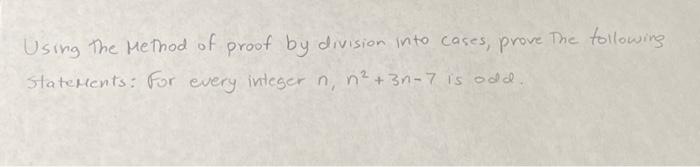 Using The Method of proof by division into cases, prove The following
Statements: For every integer n, n² + 3n - 7 is odd.